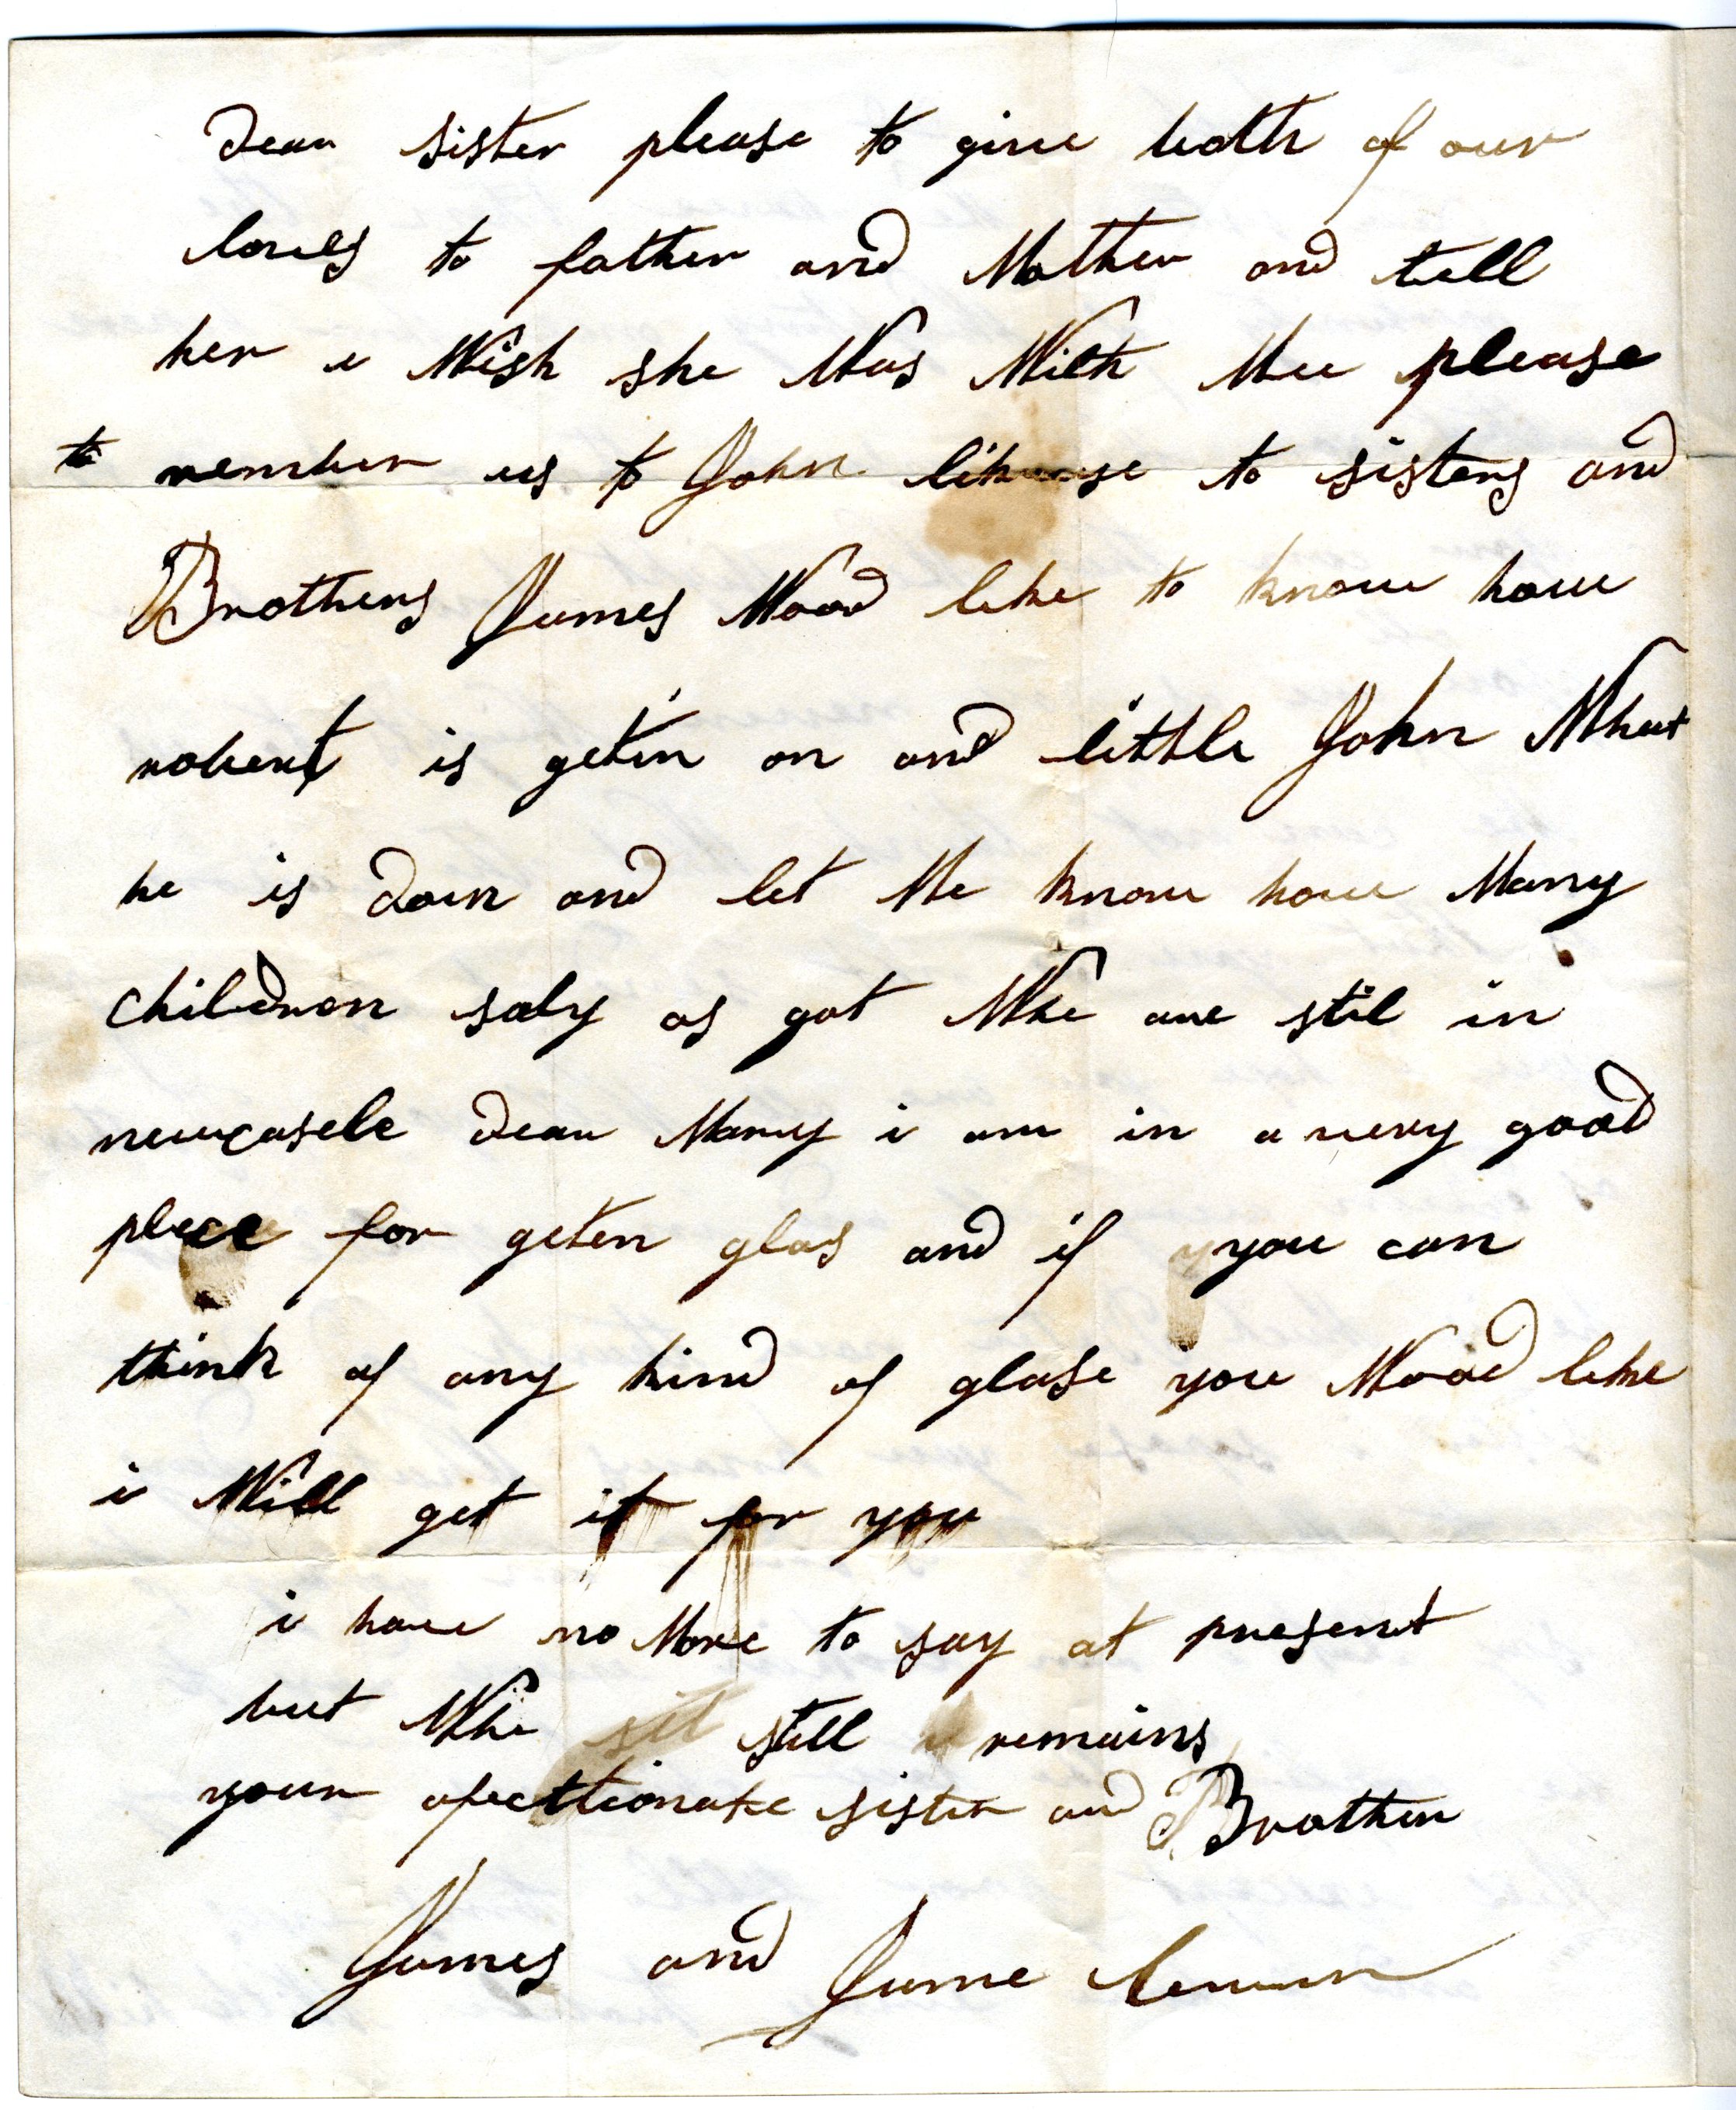 Dear sister please to give both of our
loves to father and Mother and tell
her i Wish she Was With Mee please
to rember us to John likwase to sisters and
Brothers James Wood like to know how
robert is getin on and little John What
he is doin and let Me know how Many
Children saly as got Whe are stil in
newcasele Dear Mary i am in a very good
place for geten glas and if you can
think of any kind of glase you Wood like
i Will get it for you
i have no More to say at present
but Whe still remains
your afecttionate sister and Brother
James and Jane